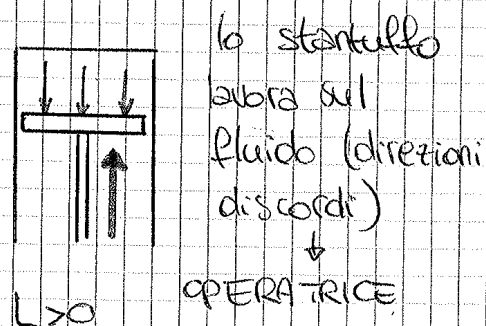 lo stantuffo
lavora sul
fluido (direzioni
discordi)
↓
OPERATRICE
L>0